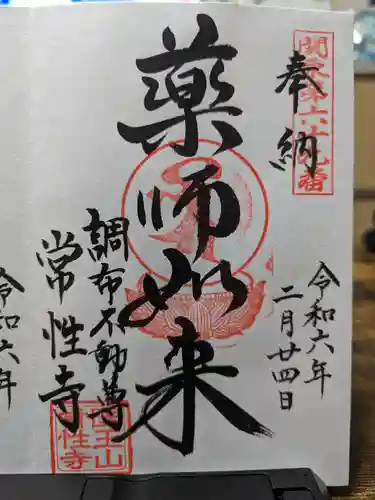 奉納
関東第六十九番
令和六年
二月廿四日
薬師如来
調布不動尊
常性寺
医王山
常性寺
令和六年